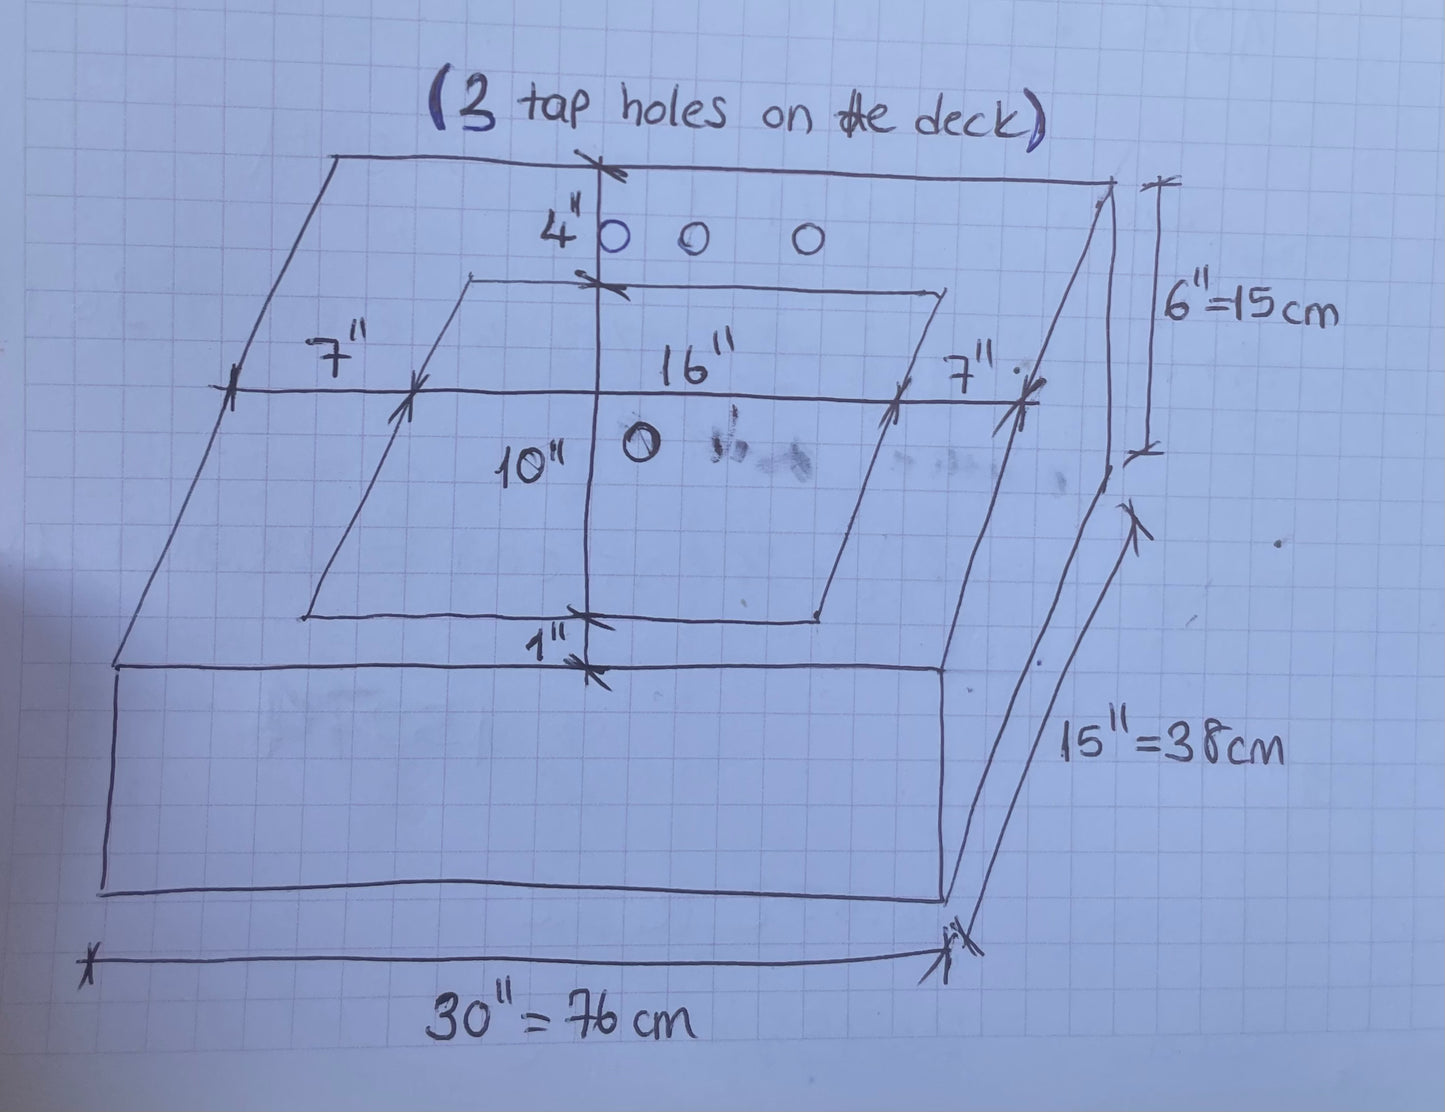 (3 tap holes on the deck)
4"
6"=15cm
7"
16"
7"
10"
1"
15"=38cm
30"=76cm